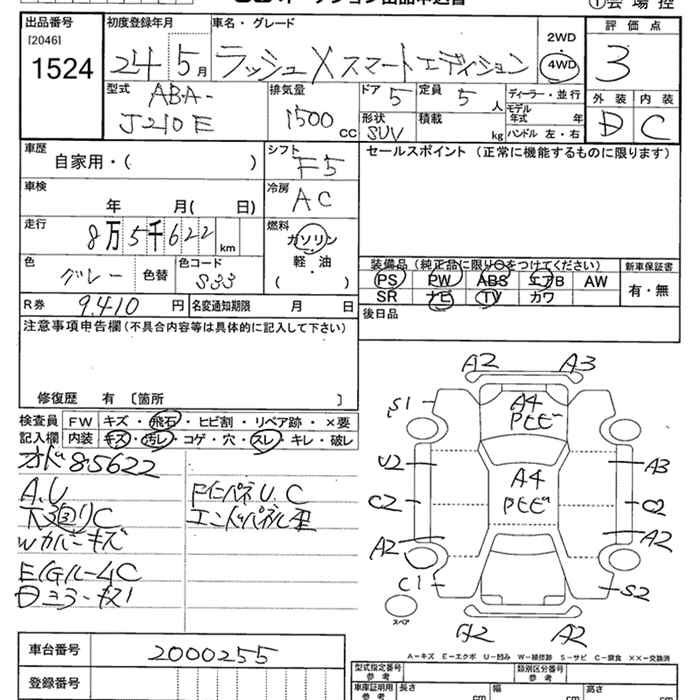 出品番号
[2046]
1524
初度登録年月
24 5月
車名・グレード
ラッシュ X スマートエディション
2WD
4WD
評価点
3
型式
ABA-
J210E
排気量
1500 cc
ドア 5
定員 5 人
ディーラー・並行
モデル年式 年
形状 SUV
積載 kg
ハンドル 左・右
外装 内装
D C
車歴
自家用・( )
シフト
F5
セールスポイント (正常に機能するものに限ります)
車検
年 月( 日)
冷房
AC
走行
8万5千622 km
燃料
ガソリン
軽・油
( )
色
グレー 色替
色コード
S33
装備品(純正品に限り○をつけてください)
新車保証書
PS PW ABS エアB AW
有・無
SR ナビ TV カワ
R券 9410 円
名変通知期限 月 日
後日品
注意事項申告欄(不具合内容等は具体的に記入して下さい)
修復歴 有 〔箇所 〕
検査員 FW キズ・飛石・ヒビ割・リペア跡・×要
記入欄 内装 キズ・汚レ・コゲ・穴・スレ・キレ・破レ
オド85622
A.U
Wカバーキズ
E/GルームC
FインパネU.C
エンドパネル歪
A2 A3
S1 A4
U2 A4 A3
C2 C2
A2 A2
C1 S2
スペア
A2 A2
A-キズ E-エクボ U-凹み W-補修跡 S-サビ C-腐食 ××-交換済
車台番号 2000255
登録番号
型式指定番号
参考
類別区分番号
参考
車庫証明用
参考
長さ cm
幅 cm
高さ cm